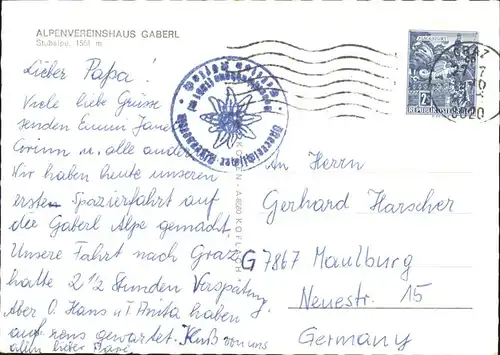 ALPENVEREINSHAUS GABERL
Stubalpe, 1551 m
Lieber Papa!
Viele liebe Grüsse
senden Euch
Corinn u. alle anderen
Wir haben heute unseren
ersten Spazierfahrt auf
die Gaberl Alpe gemacht.
Unsere Fahrt nach Graz
hatte 2 1/2 Stunden Verspätung.
Aber O. Hans u Anita haben
auf uns gewartet. Kuß von uns
allen lieber Papa
GRAZ
8020
2
REPUBLIK ÖSTERREICH
Österreichischer Alpenverein
KÖFLACH
An Herrn
Gerhard Harscher
G 7867 Maulburg
Neuestr. 15
Germany